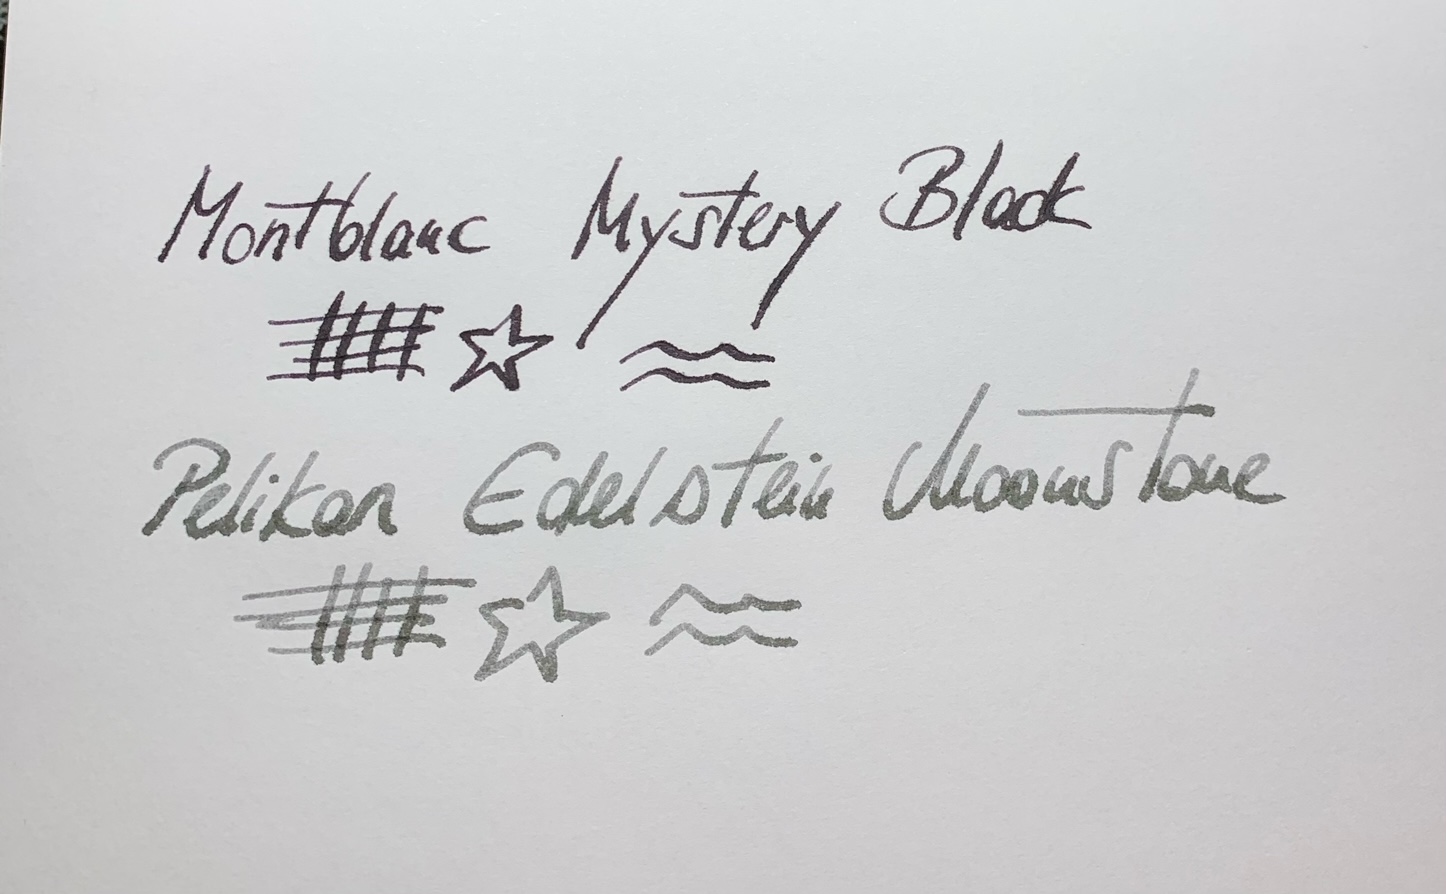 Montblanc Mystery Black
Pelikan Edelstein Moonstone